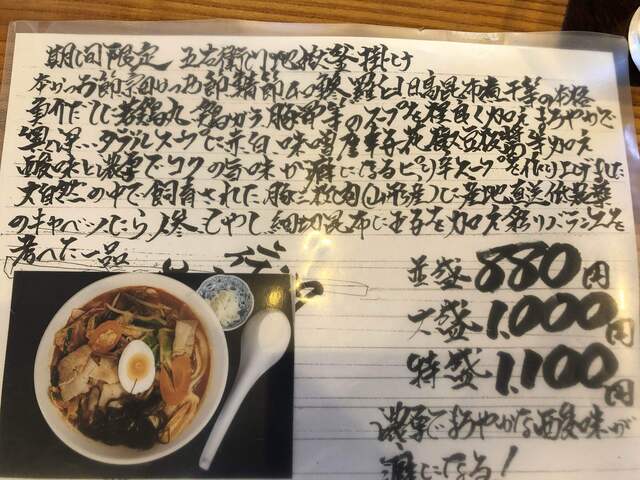 期間限定 五右衛門
本かつお節宗田かつお節鯖節 日高昆布煮干等の
だしに若鶏丸鶏ガラ豚骨等のスープを程良く加えまろやかで
ダブルスープに赤白味噌唐辛子花椒豆板醤等加え
酸味と濃厚でコクの旨味が癖になるピリ辛スープを作り上げました
大自然の中で飼育された豚三枚肉(山形産)に産地直送低農薬
のキャベツにら人参もやし細切昆布にまるを加え彩りバランスを
考へた一品
並盛880円
大盛1,000円
特盛1,100円
濃厚でまろやかな酸味が
癖になる!